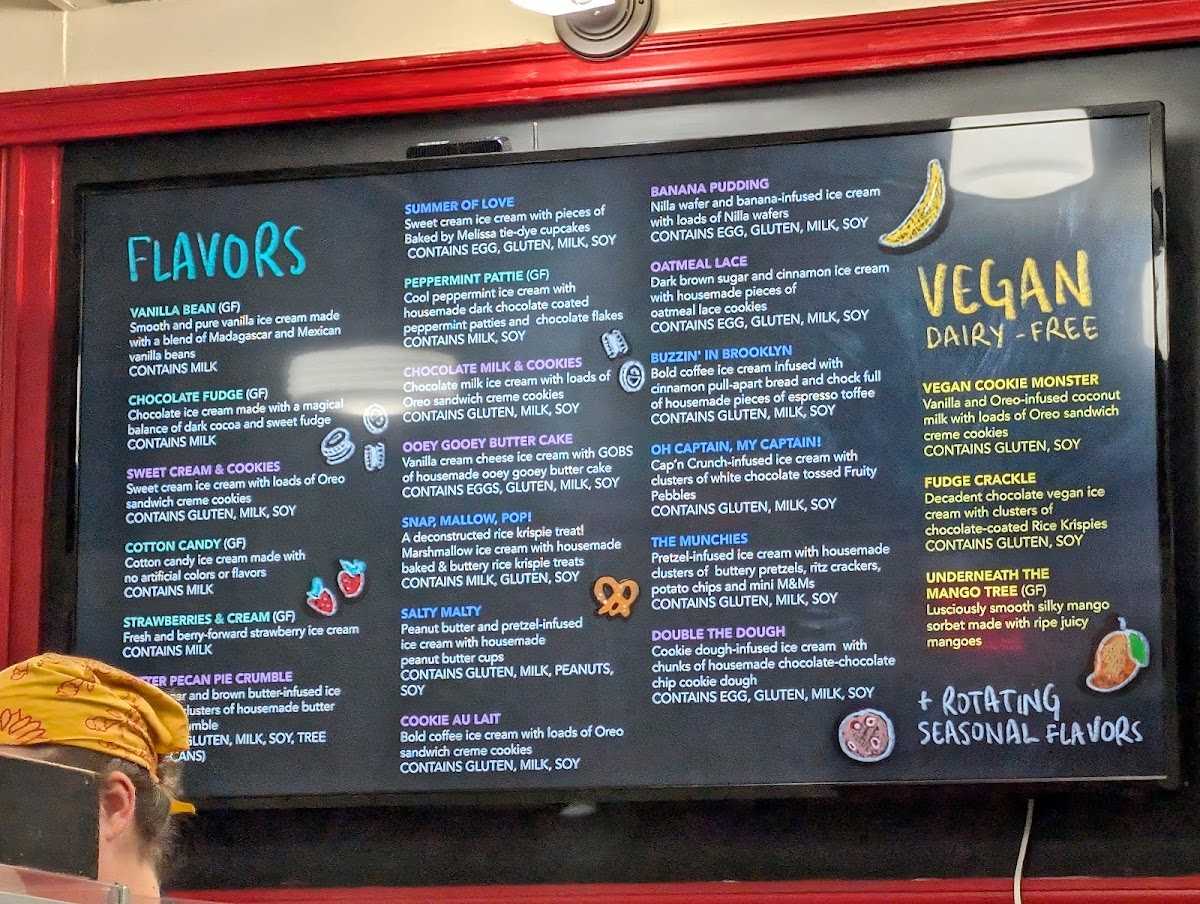 FLAVORS
VANILLA BEAN (GF)
Smooth and pure vanilla ice cream made
with a blend of Madagascar and Mexican
vanilla beans
CONTAINS MILK
CHOCOLATE FUDGE (GF)
Chocolate ice cream made with a magical
balance of dark cocoa and sweet fudge
CONTAINS MILK
SWEET CREAM & COOKIES
Sweet cream ice cream with loads of Oreo
sandwich creme cookies
CONTAINS GLUTEN, MILK, SOY
COTTON CANDY (GF)
Cotton candy ice cream made with
no artificial colors or flavors
CONTAINS MILK
STRAWBERRIES & CREAM (GF)
Fresh and berry-forward strawberry ice cream
CONTAINS MILK
PECAN PIE CRUMBLE
and brown butter-infused ice
clusters of housemade butter
GLUTEN, MILK, SOY, TREE
SUMMER OF LOVE
Sweet cream ice cream with pieces of
Baked by Melissa tie-dye cupcakes
CONTAINS EGG, GLUTEN, MILK, SOY
PEPPERMINT PATTIE (GF)
Cool peppermint ice cream with
housemade dark chocolate coated
peppermint patties and chocolate flakes
CONTAINS MILK, SOY
CHOCOLATE MILK & COOKIES
Chocolate milk ice cream with loads of
Oreo sandwich creme cookies
CONTAINS GLUTEN, MILK, SOY
OOEY GOOEY BUTTER CAKE
Vanilla cream cheese ice cream with GOBS
of housemade ooey gooey butter cake
CONTAINS EGGS, GLUTEN, MILK, SOY
SNAP, MALLOW, POP!
A deconstructed rice krispie treat!
Marshmallow ice cream with housemade
baked & buttery rice krispie treats
CONTAINS MILK, GLUTEN, SOY
SALTY MALTY
Peanut butter and pretzel-infused
ice cream with housemade
peanut butter cups
CONTAINS GLUTEN, MILK, PEANUTS,
SOY
COOKIE AU LAIT
Bold coffee ice cream with loads of Oreo
sandwich creme cookies
CONTAINS GLUTEN, MILK, SOY
BANANA PUDDING
Nilla wafer and banana-infused ice cream
with loads of Nilla wafers
CONTAINS EGG, GLUTEN, MILK, SOY
OATMEAL LACE
Dark brown sugar and cinnamon ice cream
with housemade pieces of
oatmeal lace cookies
CONTAINS EGG, GLUTEN, MILK, SOY
BUZZIN' IN BROOKLYN
Bold coffee ice cream infused with
cinnamon pull-apart bread and chock full
of housemade pieces of espresso toffee
CONTAINS GLUTEN, MILK, SOY
OH CAPTAIN, MY CAPTAIN!
Cap'n Crunch-infused ice cream with
clusters of white chocolate tossed Fruity
Pebbles
CONTAINS GLUTEN, MILK, SOY
THE MUNCHIES
Pretzel-infused ice cream with housemade
clusters of buttery pretzels, ritz crackers,
potato chips and mini M&Ms
CONTAINS GLUTEN, MILK, SOY
DOUBLE THE DOUGH
Cookie dough-infused ice cream with
chunks of housemade chocolate-chocolate
chip cookie dough
CONTAINS EGG, GLUTEN, MILK, SOY
VEGAN
DAIRY-FREE
VEGAN COOKIE MONSTER
Vanilla and Oreo-infused coconut
milk with loads of Oreo sandwich
creme cookies
CONTAINS GLUTEN, SOY
FUDGE CRACKLE
Decadent chocolate vegan ice
cream with clusters of
chocolate-coated Rice Krispies
CONTAINS GLUTEN, SOY
UNDERNEATH THE
MANGO TREE (GF)
Lusciously smooth silky mango
sorbet made with ripe juicy
mangoes
+ ROTATING
SEASONAL FLAVORS